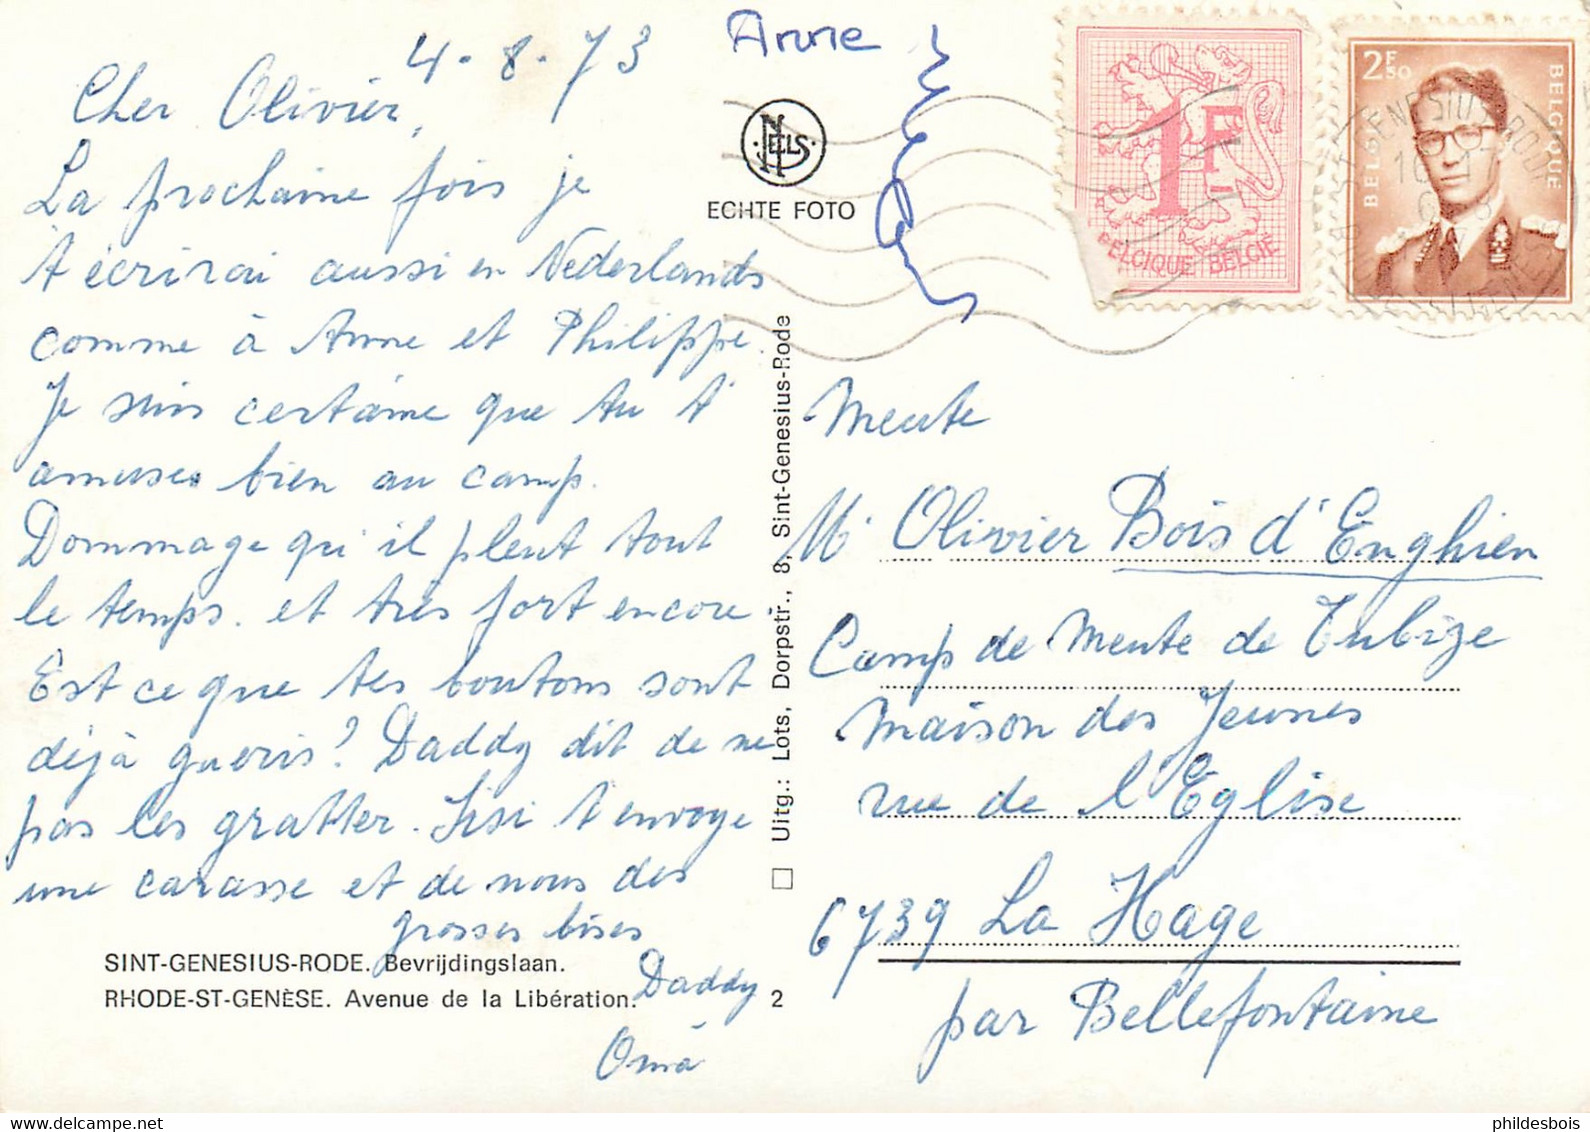 4.8.73
Cher Olivier,
La prochaine fois je
t'écrirai aussi en Nederlands
comme à Anne et Philippe.
Je suis certaine que tu t'
amuses bien au camp.
Dommage qu'il pleut tout
le temps. et très fort encore
Est ce que tes boutons sont
déjà gueris? Daddy dit de ne
pas les gratter. Sisi t'envoye
une carasse et de nous des
grosses bises
Daddy
Oma
SINT-GENESIUS-RODE. Bevrijdingslaan.
RHODE-ST-GENÈSE. Avenue de la Libération.
2
Anne
NELS
ECHTE FOTO
Uitg.: Lots, Dorpstr., 8, Sint-Genesius-Rode
1F
BELGIQUE BELGIË
2F50
BELGIË
BELGIQUE
Meute
Mr Olivier Bois d'Enghien
Camp de Meute de Tubize
Maison des Jeunes
rue de l'Eglise
6739 La Hage
par Bellefontaine
phildesbois